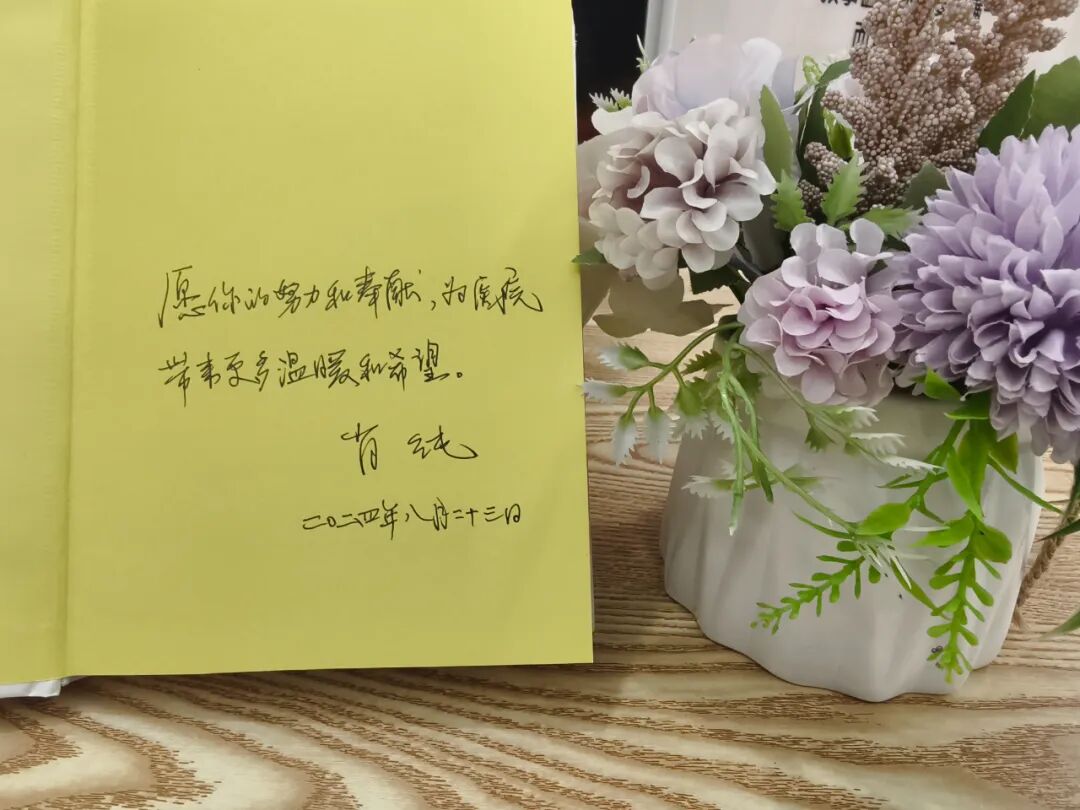 愿你的努力和奉献，为
带来更多温暖和希望。
肖 纯
二〇二四年八月二十三日